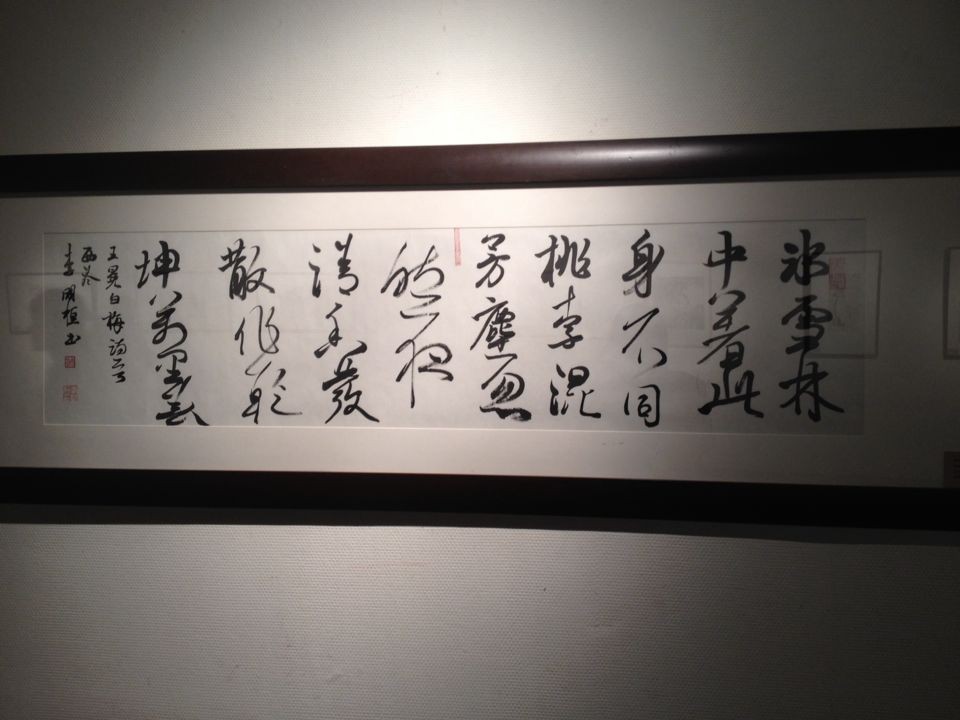 冰雪林
中著此
身不同
桃李混
芳塵忽
然一夜
清香發
散作乾
坤萬里春
王冕白梅詩一首
李國桓書